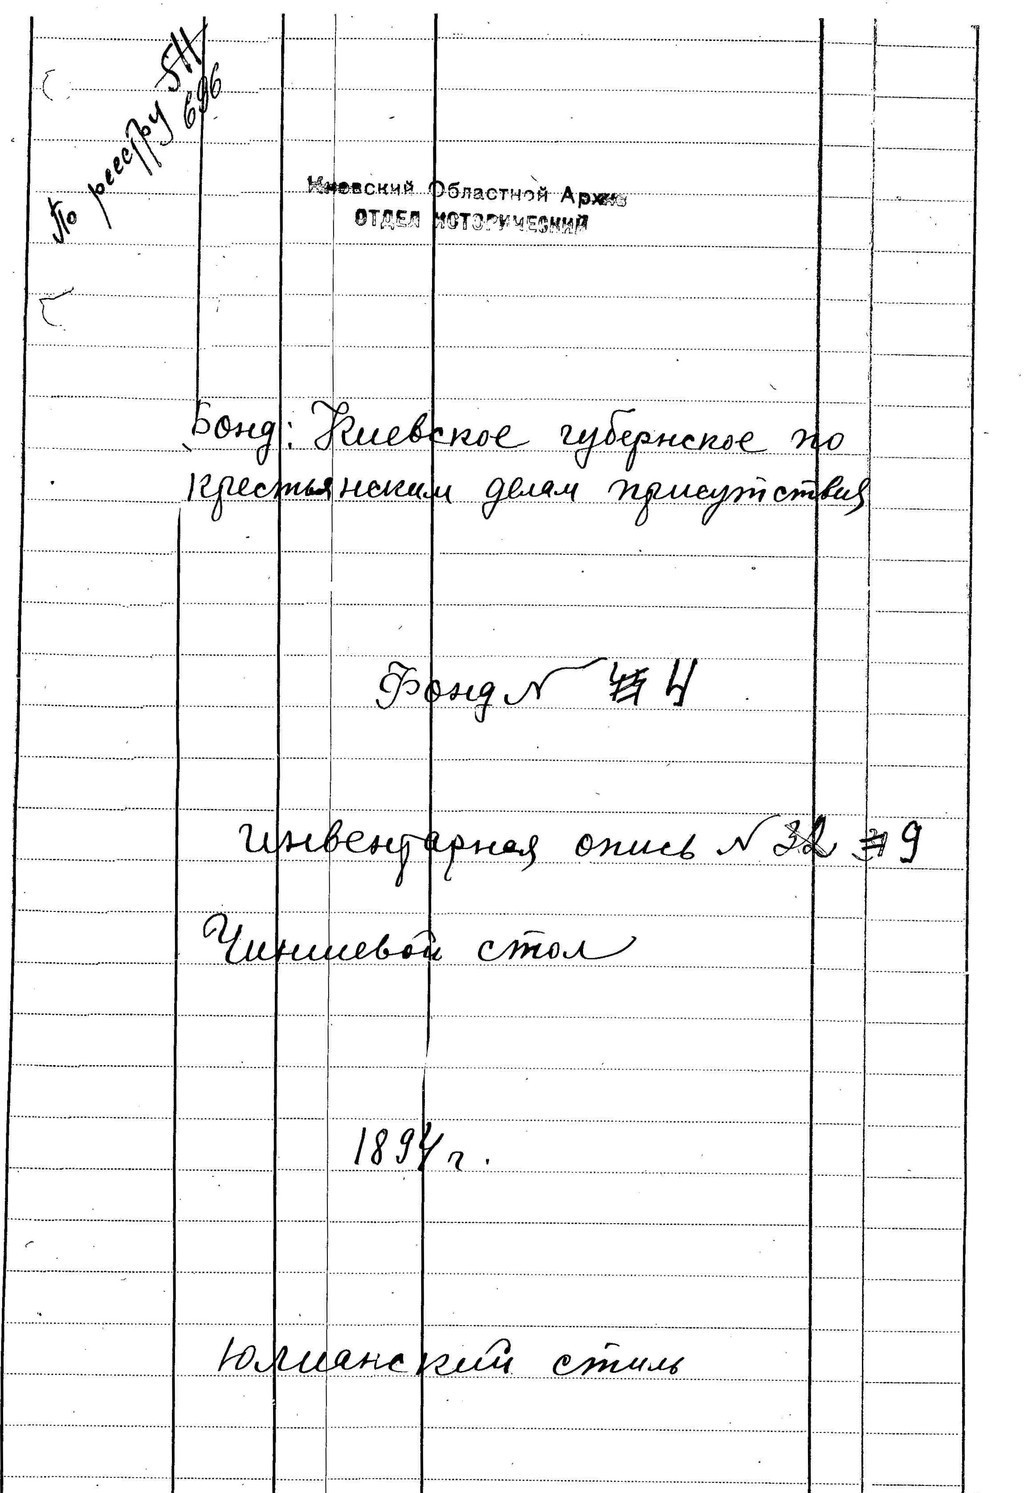 По реестру 511
696
Киевский Областной Архив
ОТДЕЛ ИСТОРИЧЕСКИЙ
Бонд: Киевское губернское по
крестьянским делам присутствия
Фонд N 4
инвентарная опись N 32 9
Чиншевой стол
1894 г.
Юлианский стиль